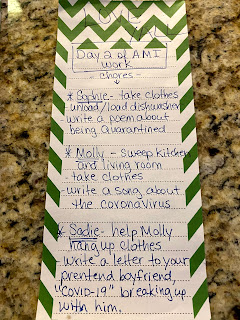 Day 2 of AMI
work
- chores -
* Sophie - take clothes
unload/load dishwasher
- write a poem about
being Quarantined
* Molly - sweep kitchen
and living room
- take clothes
- write a song about
the coronavirus
* Sadie - help Molly
hang up clothes
- write a letter to your
prentend boyfriend,
"Covid-19" breaking up
with him.